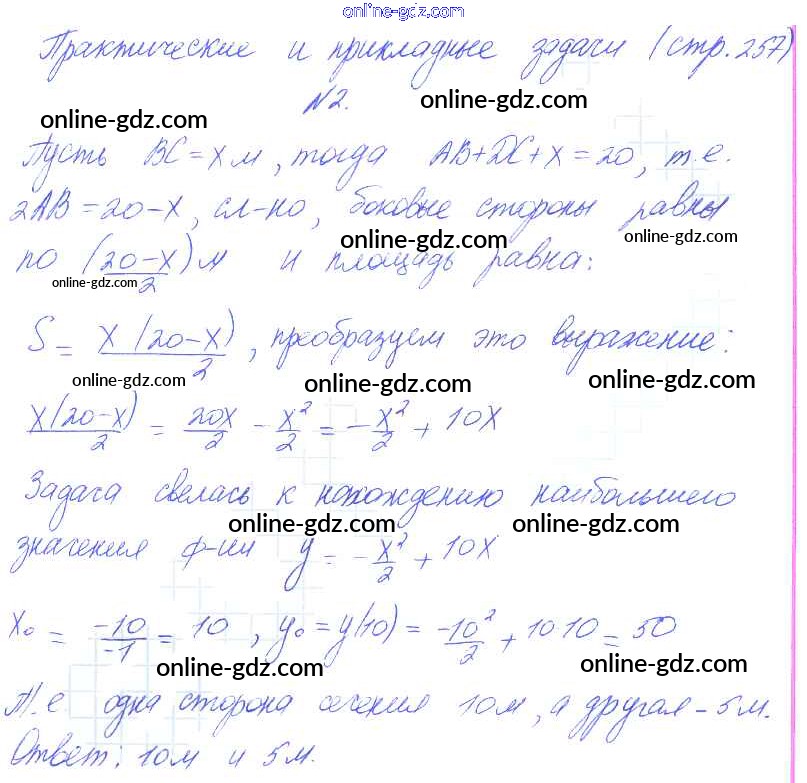 online-gdz.com
Практические и прикладные задачи (стр. 257)
N2.
online-gdz.com
online-gdz.com
Пусть BC = x м, тогда AB+DC+x=20, т.е.
2AB = 20-x, сл-но, боковые стороны равны
online-gdz.com
online-gdz.com
по (20-x)/2 м и площадь равна:
online-gdz.com
S = x(20-x)/2, преобразуем это выражение:
online-gdz.com
online-gdz.com
online-gdz.com
x(20-x)/2 = 20x/2 - x²/2 = -x²/2 + 10x
Задача свелась к нахождению наибольшего
online-gdz.com
online-gdz.com
значения ф-ии y = -x²/2 + 10x
x₀ = -10/-1 = 10, y₀ = y(10) = -10²/2 + 10·10 = 50
online-gdz.com
online-gdz.com
Т.е. одна сторона сечения 10м, а другая - 5м.
Ответ: 10м и 5м.